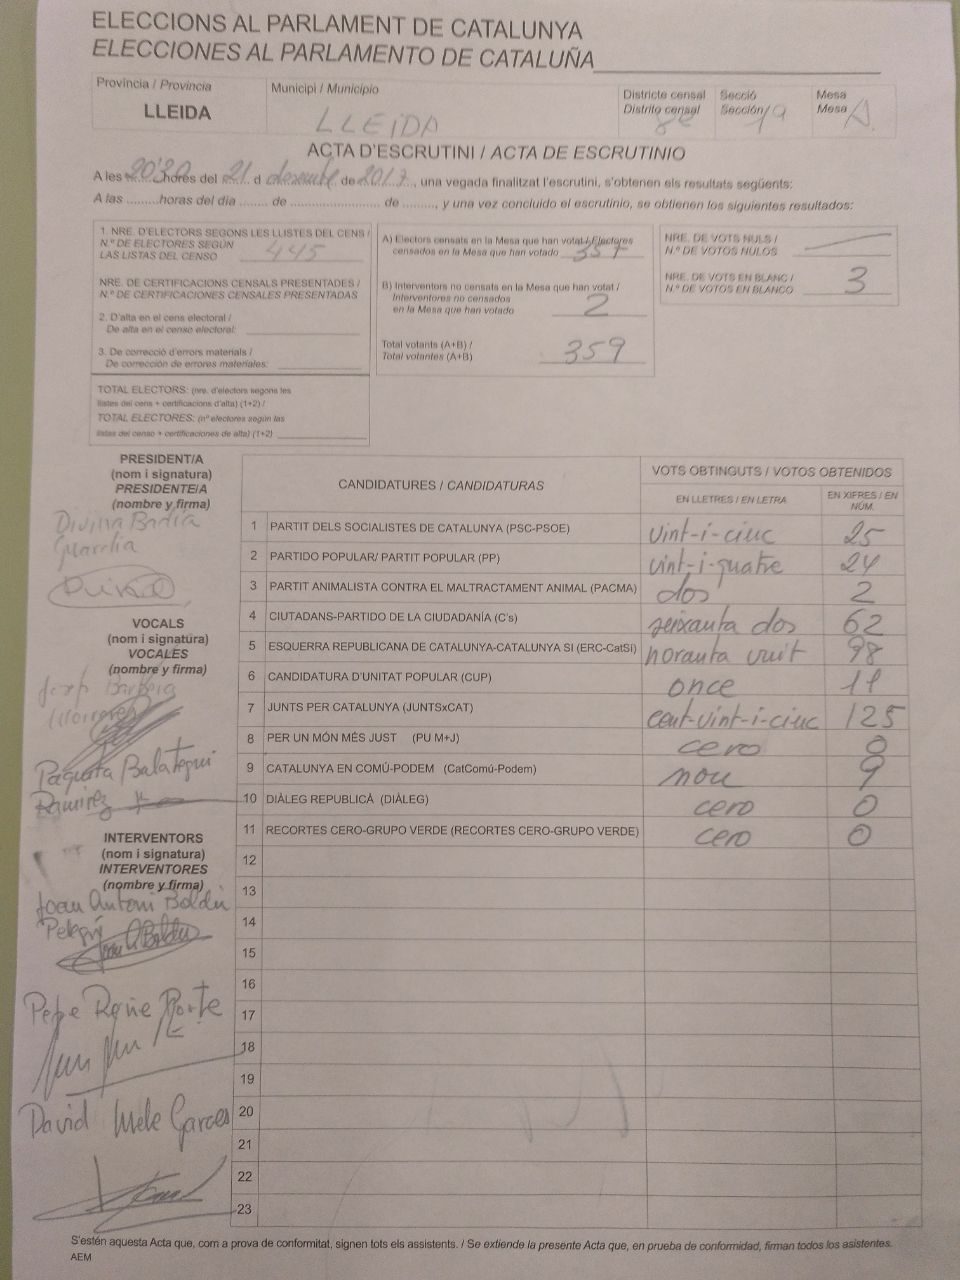 ELECCIONS AL PARLAMENT DE CATALUNYA
ELECCIONES AL PARLAMENTO DE CATALUÑA
Província / Provincia
LLEIDA
Municipi / Municipio
LLEIDA
Districte censal
Distrito censal
8è
Secció
Sección 19
Mesa
Mesa A
ACTA D'ESCRUTINI / ACTA DE ESCRUTINIO
A les 20'30 hores del 21 d desembre de 2017, una vegada finalitzat l'escrutini, s'obtenen els resultats següents:
A las .........horas del día ........ de ....................... de ........, y una vez concluido el escrutinio, se obtienen los siguientes resultados:
1. NRE. D'ELECTORS SEGONS LES LLISTES DEL CENS /
N.º DE ELECTORES SEGÚN
LAS LISTAS DEL CENSO 445
NRE. DE CERTIFICACIONS CENSALS PRESENTADES /
N.º DE CERTIFICACIONES CENSALES PRESENTADAS
2. D'alta en el cens electoral /
De alta en el censo electoral:
3. De correcció d'errors materials /
De corrección de errores materiales:
TOTAL ELECTORS: (nre. d'electors segons les
llistes del cens + certificacions d'alta) (1+2) /
TOTAL ELECTORES: (nº electores según las
listas del censo + certificaciones de alta) (1+2)
A) Electors censats en la Mesa que han votat / Electores
censados en la Mesa que han votado 357
B) Interventors no censats en la Mesa que han votat /
Interventores no censados
en la Mesa que han votado 2
Total votants (A+B) /
Total votantes (A+B) 359
NRE. DE VOTS NULS /
N.º DE VOTOS NULOS
NRE. DE VOTS EN BLANC /
N.º DE VOTOS EN BLANCO 3
PRESIDENT/A
(nom i signatura)
PRESIDENTE/A
(nombre y firma)
Divina Badia
Guardia
VOCALS
(nom i signatura)
VOCALES
(nombre y firma)
Josep Barbera
Paquita Balategui
Ramirez
INTERVENTORS
(nom i signatura)
INTERVENTORES
(nombre y firma)
Joan Antoni Boldú
Pelegrí
Pepe Reñe
David Mele Garces
CANDIDATURES / CANDIDATURAS
VOTS OBTINGUTS / VOTOS OBTENIDOS
EN LLETRES / EN LETRA
EN XIFRES / EN NÚM.
1 PARTIT DELS SOCIALISTES DE CATALUNYA (PSC-PSOE) vint-i-cinc 25
2 PARTIDO POPULAR/ PARTIT POPULAR (PP) vint-i-quatre 24
3 PARTIT ANIMALISTA CONTRA EL MALTRACTAMENT ANIMAL (PACMA) dos 2
4 CIUTADANS-PARTIDO DE LA CIUDADANÍA (C's) seixanta dos 62
5 ESQUERRA REPUBLICANA DE CATALUNYA-CATALUNYA SI (ERC-CatSí) noranta vuit 98
6 CANDIDATURA D'UNITAT POPULAR (CUP) once 11
7 JUNTS PER CATALUNYA (JUNTSxCAT) cent-vint-i-cinc 125
8 PER UN MÓN MÉS JUST (PU M+J) cero 0
9 CATALUNYA EN COMÚ-PODEM (CatComú-Podem) nou 9
10 DIÀLEG REPUBLICÀ (DIÀLEG) cero 0
11 RECORTES CERO-GRUPO VERDE (RECORTES CERO-GRUPO VERDE) cero 0
12
13
14
15
16
17
18
19
20
21
22
23
S'estén aquesta Acta que, com a prova de conformitat, signen tots els assistents. / Se extiende la presente Acta que, en prueba de conformidad, firman todos los asistentes.
AEM